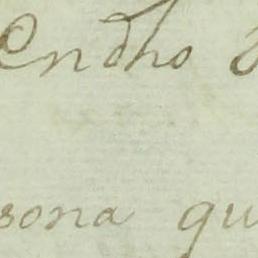 En dho
sona qu